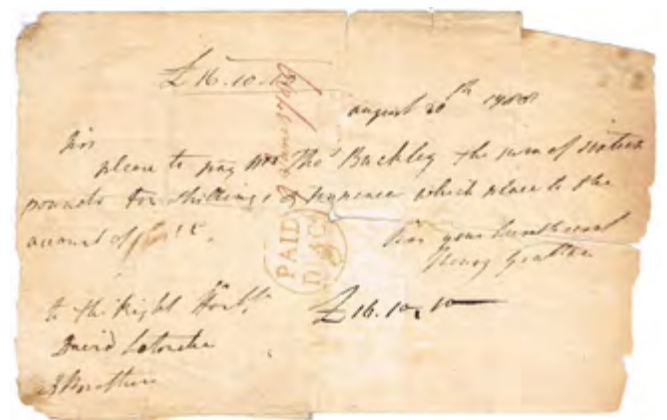 £16.10.10
august 20th 1788
Sir
please to pay Mr Thos Buckley the sum of sixteen
pounds ten shillings & tenpence which place to the
account of
Sir your humble servant
Henry Grattan
PAID
D & Co
to the Right Honble
David Latouche
& Brothers
£16.10.10